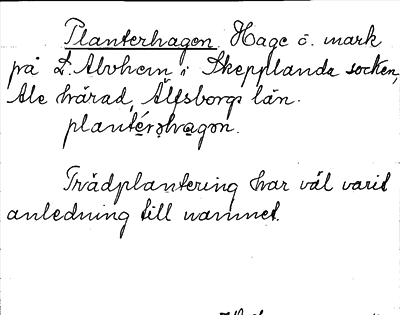 Planterhagen. Hage o. mark
på L. Alvhem i Skepplanda socken,
Ale härad, Älfsborgs län.
Trädplantering har väl varit
anledning till namnet.